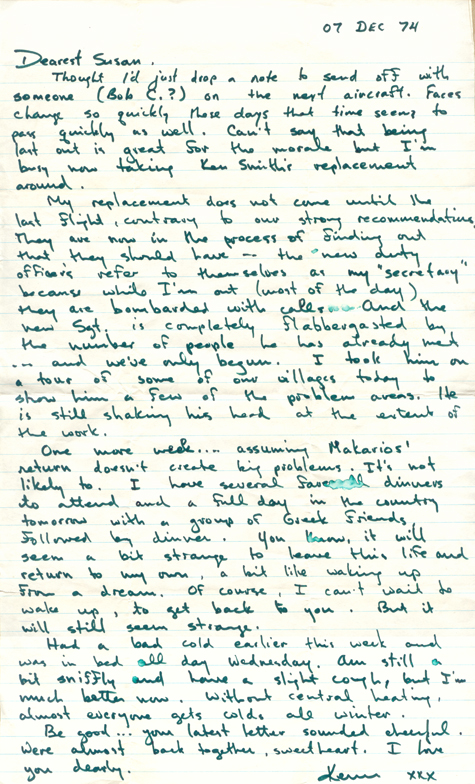 07 DEC 74
Dearest Susan.
Thought I'd just drop a note to send off with
someone (Bob C.?) on the next aircraft. Faces
change so quickly these days that time seems to
pass quickly as well. Can't say that being
last out is great for the morale but I'm
busy now taking Ken Smith's replacement
around.
My replacement does not come until the
last flight, contrary to our strong recommendations.
They are now in the process of finding out
that they should have - the new duty
officers refer to themselves as my "secretary"
because while I'm out (most of the day)
they are bombarded with calls. And the
new Sgt. is completely flabbergasted by
the number of people he has already met
... and we've only begun. I took him on
a tour of some of our villages today to
show him a few of the problem areas. He
is still shaking his head at the extent of
the work.
One more week.... assuming Makarios'
return doesn't create big problems. It's not
likely to. I have several dinners
to attend and a full day in the country
tomorrow with a group of Greek Friends
followed by dinner. You know, it will
seem a bit strange to leave this life and
return to my own, a bit like waking up
from a dream. Of course, I can't wait to
wake up, to get back to you. But it
will still seem strange.
Had a bad cold earlier this week and
was in bed all day Wednesday. Am still a
bit sniffly and have a slight cough, but I'm
much better now. Without central heating,
almost everyone gets colds all winter.
Be good... your latest letter sounded cheerful.
Were almost back together, sweetheart. I love
you dearly.
xxx